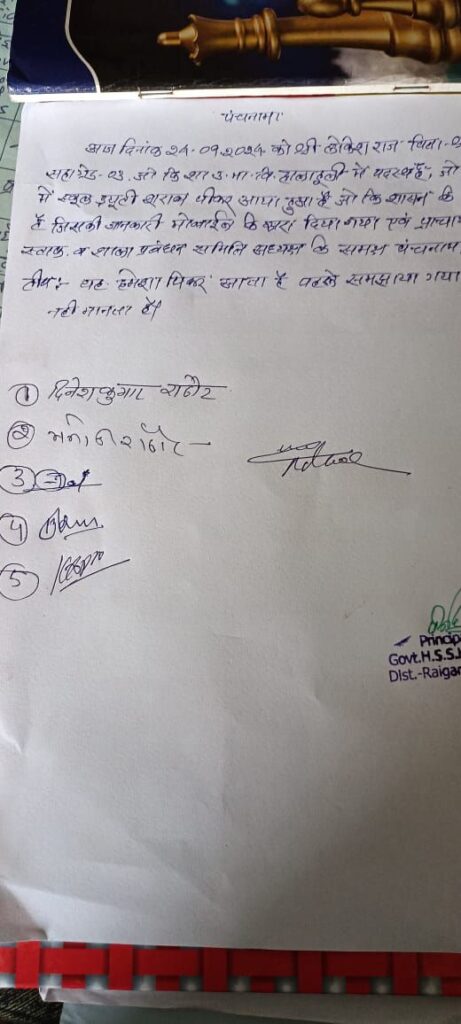 पंचनामा
आज दिनांक 24.09.2024 को श्री लोकेश राज पिता-
सहा ग्रेड-03 जो कि शा उ. मा. वि. हालाहुली में पदस्थ है, जो
में स्कूल ड्यूटी शराब पीकर आया हुआ है जो कि शासन के
है जिसकी जानकारी मोबाईल के द्वारा दिया गया एवं प्राचार्य
स्टाफ व शाला प्रबंधन समिति अध्यक्ष के समक्ष पंचनामा
टीप:- यह हमेशा पिकर आता है पहले समझाया गया
नही मानता है।
① दिनेश कुमार राठौर
②
③
④
⑤
Princip
Govt.H.S.S.
Dist.-Raigar